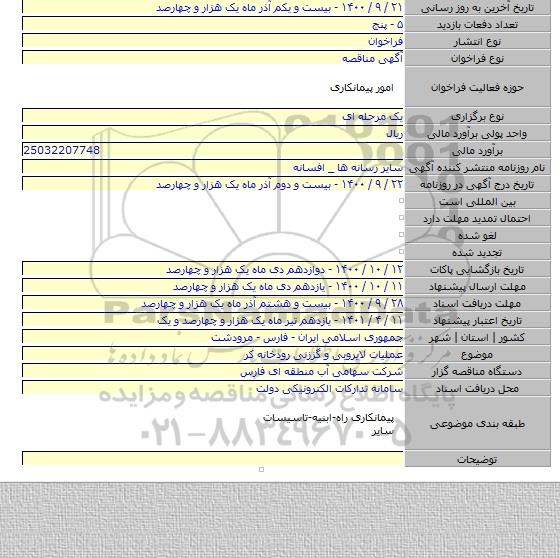 تاریخ آخرین به روز رسانی ۲۱ / ۹ / ۱۴۰۰ - بیست و یکم آذر ماه یک هزار و چهارصد
تعداد دفعات بازدید ۵ - پنج
نوع انتشار فراخوان
نوع فراخوان آگهی مناقصه
حوزه فعالیت فراخوان امور پیمانکاری
نوع برگزاری یک مرحله ای
واحد پولی برآورد مالی ریال
برآورد مالی 25032207748
نام روزنامه منتشر کننده آگهی سایر رسانه ها _ افسانه
تاریخ درج آگهی در روزنامه ۲۲ / ۹ / ۱۴۰۰ - بیست و دوم آذر ماه یک هزار و چهارصد
بین المللی است
احتمال تمدید مهلت دارد
لغو شده
تجدید شده
تاریخ بازگشایی پاکات ۱۲ / ۱۰ / ۱۴۰۰ - دوازدهم دی ماه یک هزار و چهارصد
مهلت ارسال پیشنهاد ۱۱ / ۱۰ / ۱۴۰۰ - یازدهم دی ماه یک هزار و چهارصد
مهلت دریافت اسناد ۲۸ / ۹ / ۱۴۰۰ - بیست و هشتم آذر ماه یک هزار و چهارصد
تاریخ اعتبار پیشنهاد ۱۱ / ۴ / ۱۴۰۱ - یازدهم تیر ماه یک هزار و چهارصد و یک
کشور | استان | شهر جمهوری اسلامی ایران - فارس - مرودشت
موضوع عملیات لایروبی و گرزنی رودخانه کر
دستگاه مناقصه گزار شرکت سهامی آب منطقه ای فارس
محل دریافت اسناد سامانه تدارکات الکترونیکی دولت
طبقه بندی موضوعی پیمانکاری راه-ابنیه-تاسیسات
سایر
توضیحات
پایگاه اطلاع رسانی مناقصه و مزایده
۰۲۱-۸۸۳۴۹۶۷۰-۵